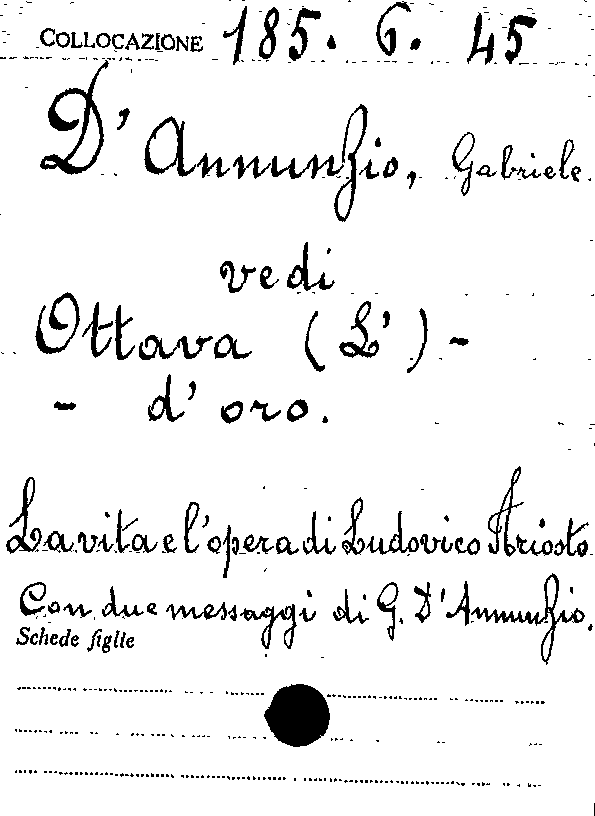 COLLOCAZIONE 185. 6. 45
D'Annunzio, Gabriele
vedi
Ottava (L') -
- d'oro.
La vita e l'opera di Ludovico Ariosto
Con due messaggi di G. D'Annunzio.
Schede figlie